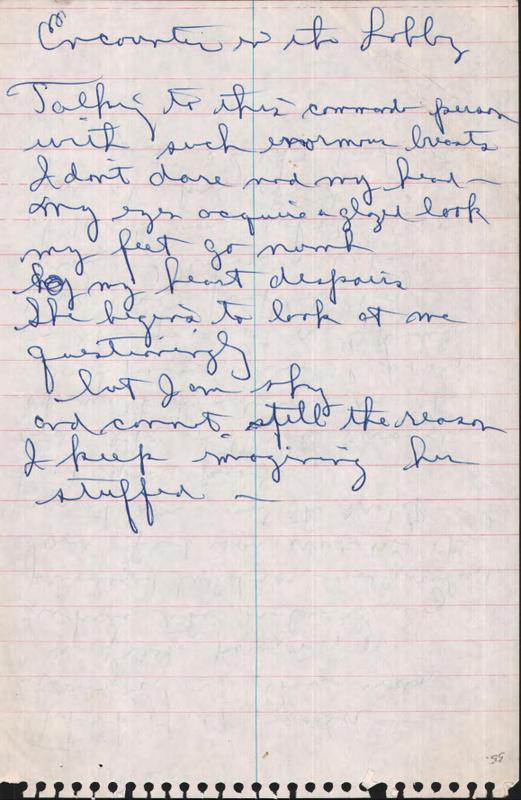 Encounter in the Lobby
Talking to this commode person
with such enormous breasts
I don't dare nod my head —
my eyes acquire a glazed look
my feet go numb
my heart despairs
She begins to look at me
questioningly
but I am shy
and cannot spill the reason
I keep imagining her
stuffed —